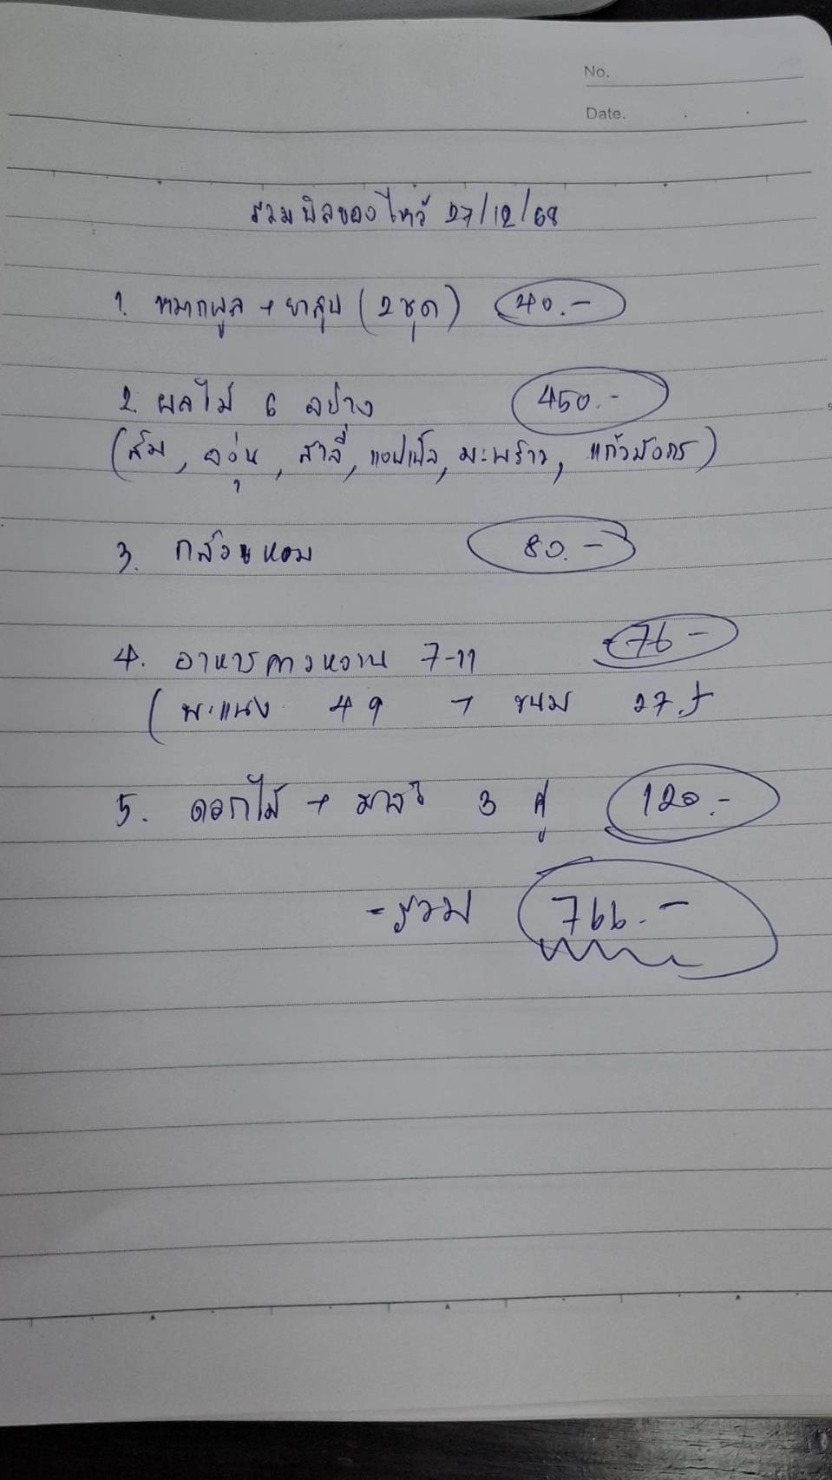 No.
Date.
รวมบิลของไหว้ 27/12/68
1. หมากพลู + ยาสูบ (2 ชุด) 40.-
2. ผลไม้ 6 อย่าง 450.-
(ส้ม, องุ่น, สาลี่, แอปเปิ้ล, มะพร้าว, แก้วมังกร)
3. กล้วยหอม 80.-
4. อาหารคาวหวาน 7-11 76-
(พะแนง 49 + ขนม 27.-)
5. ดอกไม้ + มาลัย 3 คู่ 120.-
- รวม 766.-